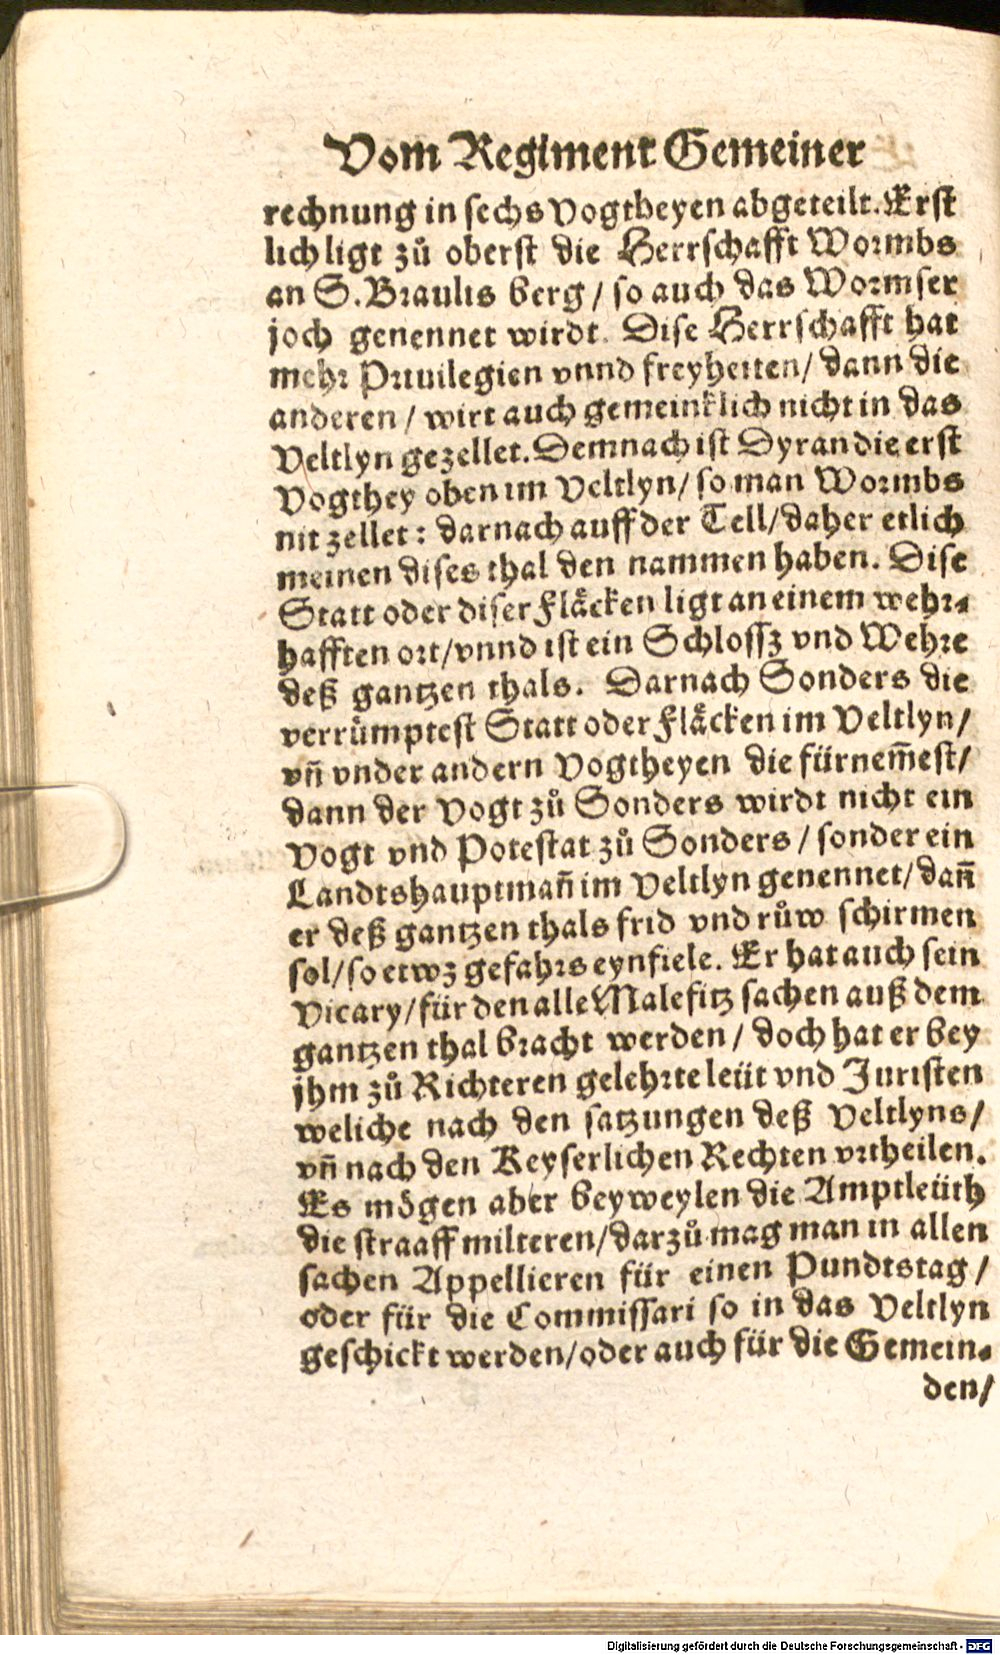 Vom Regiment Gemeiner
rechnung in sechs Vogtheyen abgeteilt. Erst
lich ligt zů oberst die Herrschafft Wormbs
an S. Braulis berg / so auch das Wormser
joch genennet wirdt. Dise Herrschafft hat
mehr Priuilegien vnnd freyheiten / dann die
anderen / wirt auch gemeinklich nicht in das
Veltlyn gezellet. Demnach ist Dyran die erst
Vogthey oben im Veltlyn / so man Wormbs
nit zellet: darnach auff der Tell / daher etlich
meinen dises thal den nammen haben. Dise
Statt oder diser Fläcken ligt an einem wehr⸗
hafften ort / vnnd ist ein Schlossz vnd Wehre
deß gantzen thals. Darnach Sonders die
verrümptest Statt oder Fläcken im Veltlyn /
vn̄ vnder andern Vogtheyen die fürnem̄est /
dann der Vogt zů Sonders wirdt nicht ein
Vogt vnd Potestat zů Sonders / sonder ein
Landtshauptman̄ im Veltlyn genennet / dan̄
er deß gantzen thals frid vnd růw schirmen
sol / so etwz gefahrs eynfiele. Er hat auch sein
Vicary / für den alle Malefitz sachen auß dem
gantzen thal bracht werden / doch hat er bey
jhm zů Richteren gelehrte leüt vnd Juristen
weliche nach den satzungen deß Veltlyns /
vn̄ nach den Keyserlichen Rechten vrtheilen.
Es mögen aber beyweylen die Amptleüth
die straaff milteren / darzů mag man in allen
sachen Appellieren für einen Pundtstag /
oder für die Commissari so in das Veltlyn
geschickt werden / oder auch für die Gemein⸗
den /
Digitalisierung gefördert durch die Deutsche Forschungsgemeinschaft - DFG